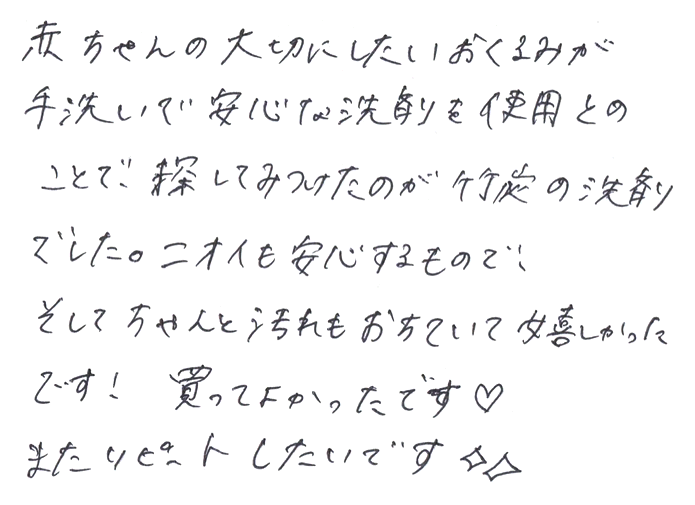 赤ちゃんの大切にしたいおくるみが
手洗いで安心な洗剤を使用との
ことで、探してみつけたのが竹炭の洗剤
でした。ニオイも安心するもので、
そしてちゃんと汚れもおちていて嬉しかった
です! 買ってよかったです♡
またリピートしたいです✧✧